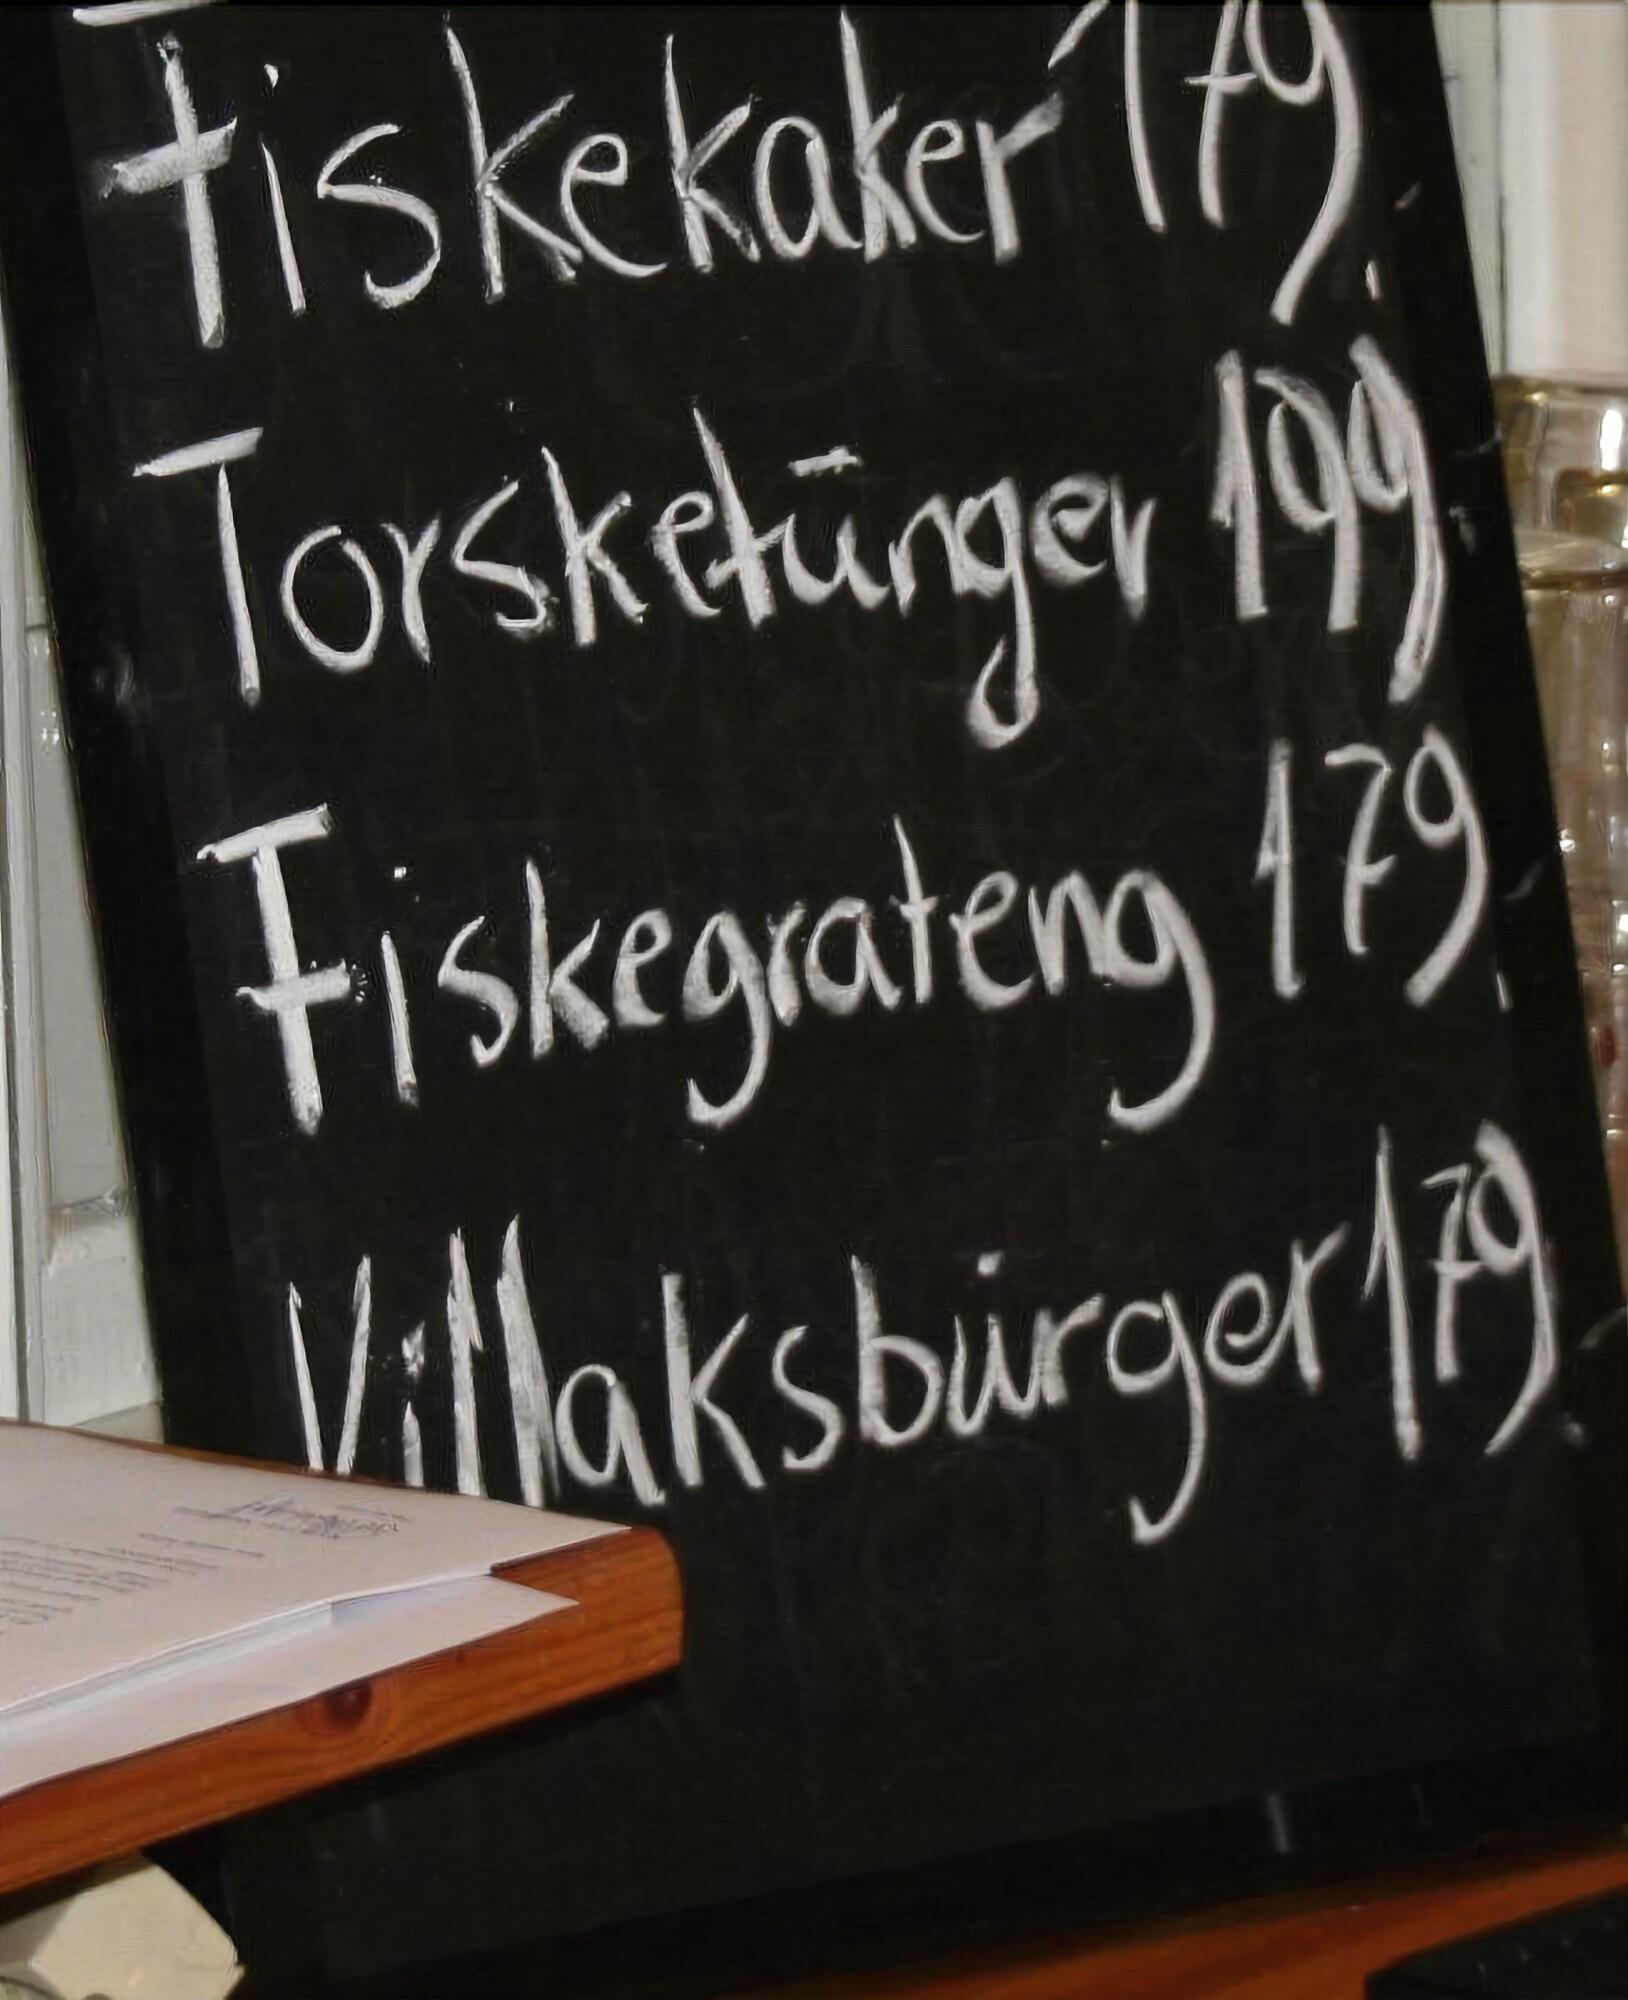 Fiskekaker 179,
Torsketūnger 199,
Fiskegrateng 179,
Villaksburger 179,